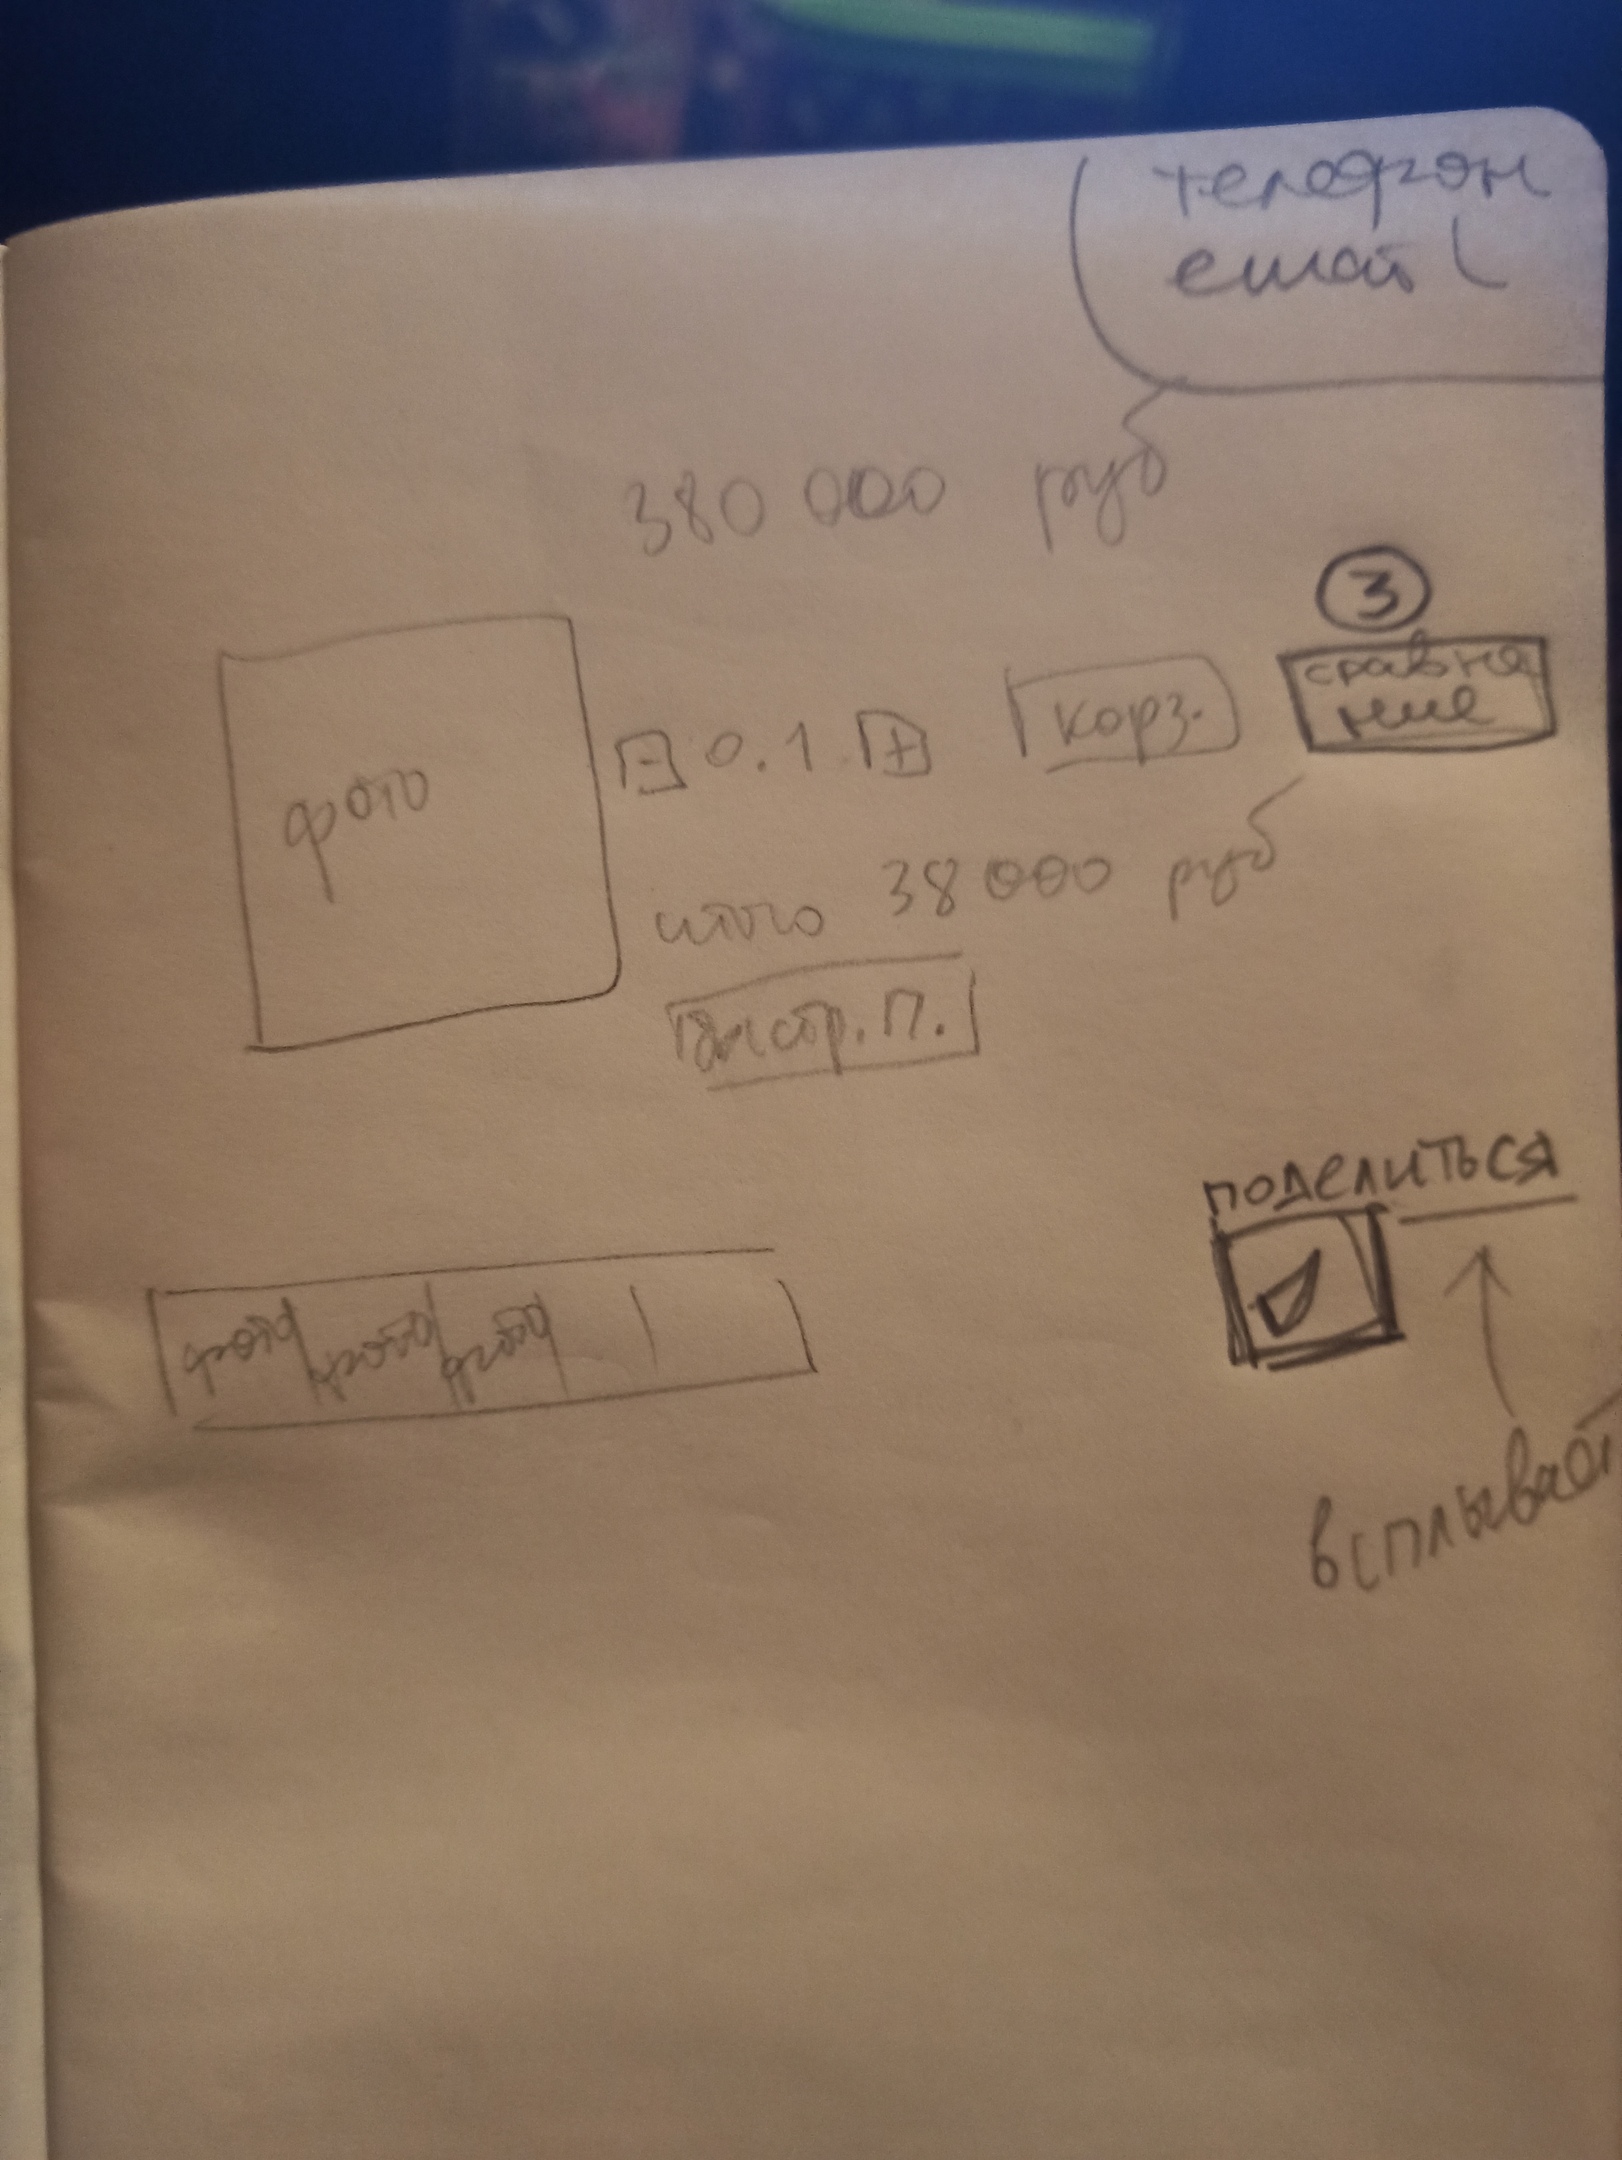 телефон
емайл
380 000 руб
3
фото
- 0.1 +
корз.
сравне
ние
итого 38 000 руб
Быстр. П.
поделиться
фото фото фото
всплывает